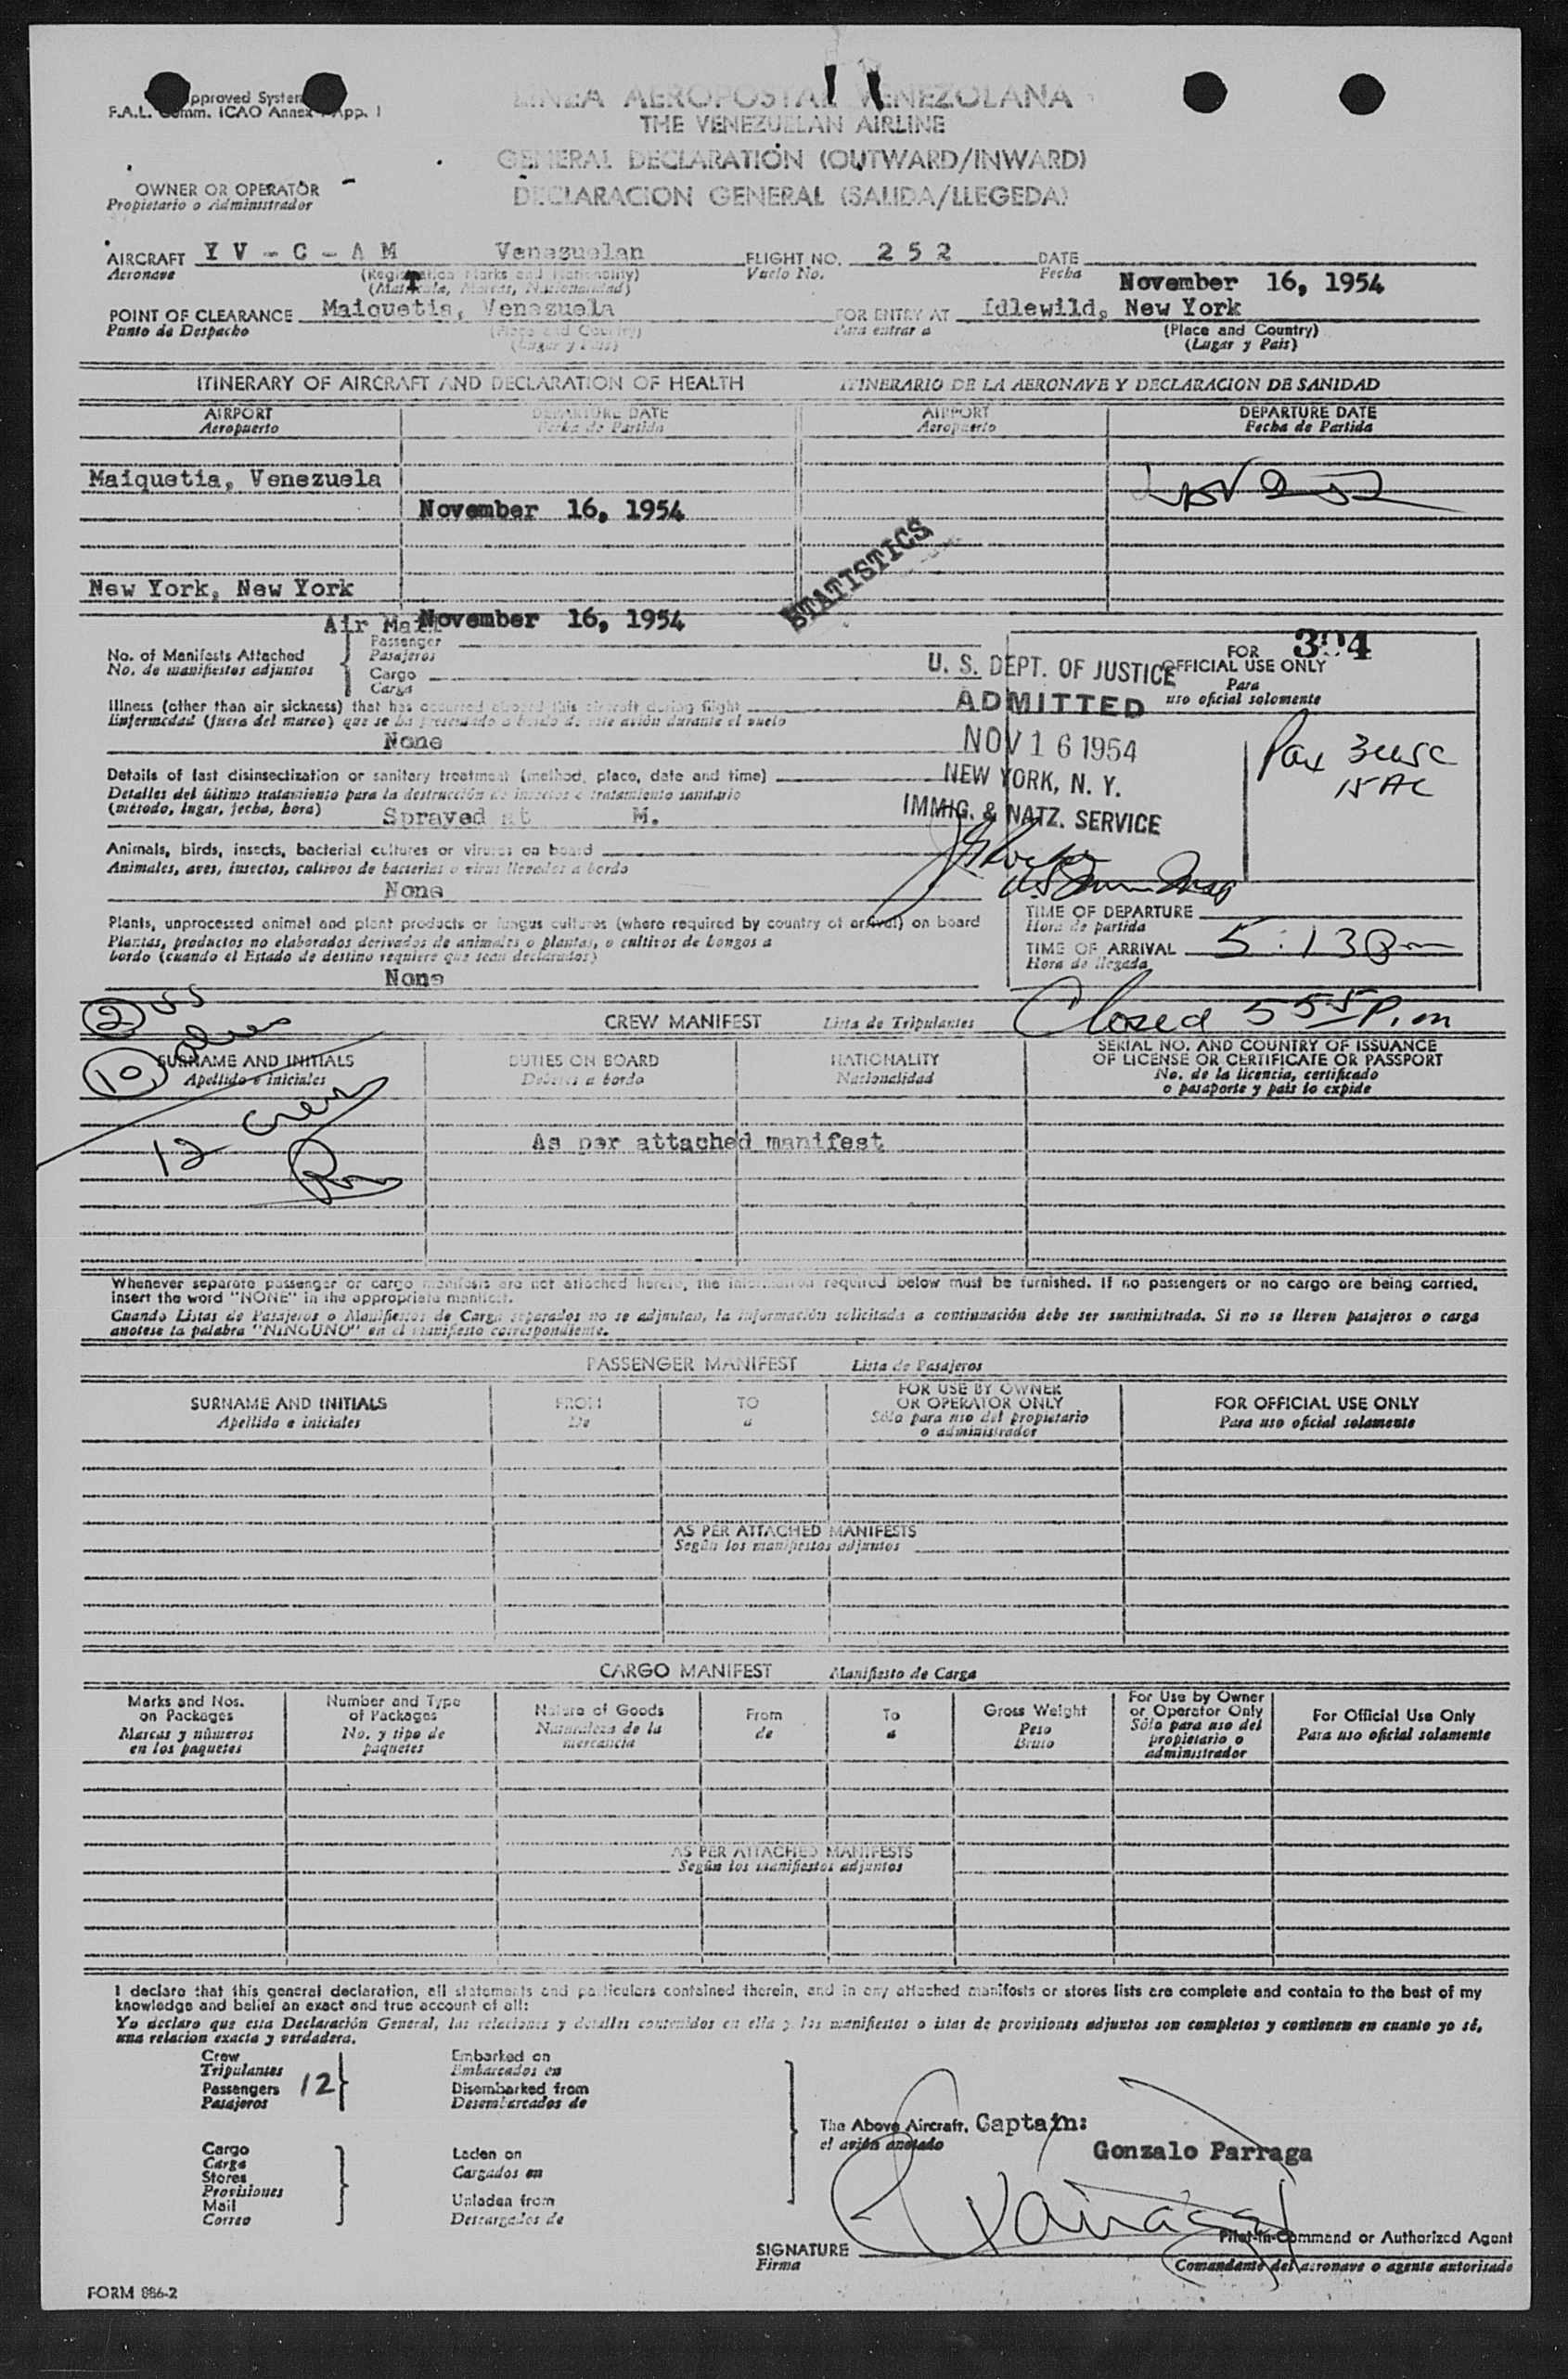 Approved System
F.A.L. Comm. ICAO Annex App. I
LINEA AEROPOSTAL VENEZOLANA
THE VENEZUELAN AIRLINE
GENERAL DECLARATION (OUTWARD/INWARD)
DECLARACION GENERAL (SALIDA/LLEGEDA)
OWNER OR OPERATOR
Propietario o Administrador
AIRCRAFT Y V - C - A M Venezuelan FLIGHT NO. 2 5 2 DATE
Aeronave (Registration Marks and Nationality) Vuelo No. Fecha November 16, 1954
(Matricula, Marcas, Nacionalidad)
POINT OF CLEARANCE Maiquetia, Venezuela FOR ENTRY AT Idlewild, New York
Punto de Despacho (Place and Country) Para entrar a (Place and Country)
(Lugar y Pais) (Lugar y Pais)
ITINERARY OF AIRCRAFT AND DECLARATION OF HEALTH ITINERARIO DE LA AERONAVE Y DECLARACION DE SANIDAD
AIRPORT DEPARTURE DATE AIRPORT DEPARTURE DATE
Aeropuerto Fecha de Partida Aeropuerto Fecha de Partida
Maiquetia, Venezuela
November 16, 1954
STATISTICS
New York, New York
Air Mail November 16, 1954
No. of Manifests Attached
No. de manifiestos adjuntos
Passenger
Pasajeros
Cargo
Carga
FOR 304
OFFICIAL USE ONLY
Para
uso oficial solomente
U. S. DEPT. OF JUSTICE
ADMITTED
NOV 16 1954
NEW YORK, N. Y.
IMMIG. & NATZ. SERVICE
Pax 3 usc
15 AC
Illness (other than air sickness) that has occurred aboard this aircraft during flight
Enfermedad (fuera del mareo) que se ha presentado a bordo de este avión durante el vuelo
None
Details of last disinsectization or sanitary treatment (method, place, date and time)
Detalles del último tratamiento para la destrucción de insectos o tratamiento sanitario
(método, lugar, fecha, hora) Sprayed at M.
Animals, birds, insects, bacterial cultures or viruses on board
Animales, aves, insectos, cultivos de bacterias o virus llevados a bordo
None
Plants, unprocessed animal and plant products or fungus cultures (where required by country of arrival) on board
Plantas, productos no elaborados derivados de animales o plantas, o cultivos de hongos a
bordo (cuando el Estado de destino requiere que sean declarados)
None
TIME OF DEPARTURE
Hora de partida
TIME OF ARRIVAL 5:13 Pm
Hora de llegada
Closed 5 55 P.m
CREW MANIFEST Lista de Tripulantes
2 USS
10 aliens
12 Crew
SURNAME AND INITIALS DUTIES ON BOARD NATIONALITY SERIAL NO. AND COUNTRY OF ISSUANCE
OF LICENSE OR CERTIFICATE OR PASSPORT
Apellido e iniciales Deberes a bordo Nacionalidad No. de la licencia, certificado
o pasaporte y pais lo expide
As per attached manifest
Whenever separate passenger or cargo manifests are not attached hereto, the information required below must be furnished. If no passengers or no cargo are being carried,
insert the word "NONE" in the appropriate manifest.
Cuando Listas de Pasajeros o Manifiestos de Carga separados no se adjuntan, la información solicitada a continuación debe ser suministrada. Si no se lleven pasajeros o carga
anotese la palabra "NINGUNO" en el manifiesto correspondiente.
PASSENGER MANIFEST Lista de Pasajeros
SURNAME AND INITIALS FROM TO FOR USE BY OWNER FOR OFFICIAL USE ONLY
OR OPERATOR ONLY
Apellido e iniciales De a Sólo para uso del propietario Para uso oficial solamente
o administrador
AS PER ATTACHED MANIFESTS
Según los manifiestos adjuntos
CARGO MANIFEST Manifiesto de Carga
Marks and Nos. on Packages Number and Type of Packages Nature of Goods From To Gross Weight For Use by Owner or Operator Only For Official Use Only
Marcas y números en los paquetes No. y tipo de paquetes Naturaleza de la mercancia de a Peso Bruto Sólo para uso del propietario o administrador Para uso oficial solamente
AS PER ATTACHED MANIFESTS
Según los manifiestos adjuntos
I declare that this general declaration, all statements and particulars contained therein, and in any attached manifests or stores lists are complete and contain to the best of my
knowledge and belief an exact and true account of all:
Yo declaro que esta Declaración General, las relaciones y detalles contenidos en ella y los manifiestos o istas de provisiones adjuntos son completos y contienen en cuanto yo sé,
una relacion exacta y verdadera.
Crew Embarked on
Tripulantes Embarcados en
Passengers 12 Disembarked from
Pasajeros Desembarcados de
The Above Aircraft. Captain:
el avión anotado
Gonzalo Parraga
Cargo Laden on
Carga Cargados en
Stores
Provisiones
Mail Unladen from
Correo Descargados de
Parraga
SIGNATURE Pilot-in-Command or Authorized Agent
Firma Comandante del aeronave o agente autorisado
FORM 886-2